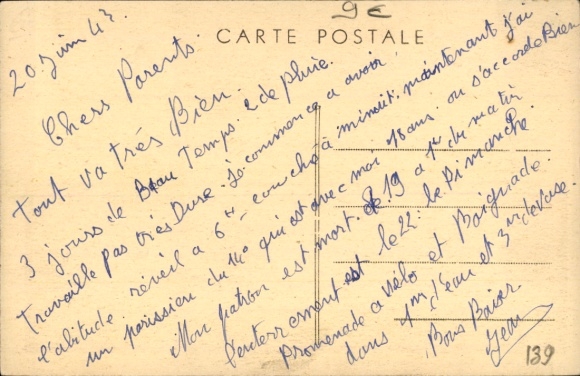 9€
CARTE POSTALE
20 Juin 43.
Chers Parents.
Tout va très Bien.
3 jours de Beau Temps. 2 de pluie.
Travaille pas très Dure. Je commence a avoir
l'abitude réveil a 6 H - couché à minuit. maintenant j'ai
un parissien du 14e qui est avec moi 18 ans. on s'accorde Bien
Mon patron est mort. le 19 a 1 H du matin
l'enterrement est le 22. le Dimanche.
promenade a vélo et Baignade.
dans 1m d'eau et 3m de vase.
Bons Baiser
Jean
139